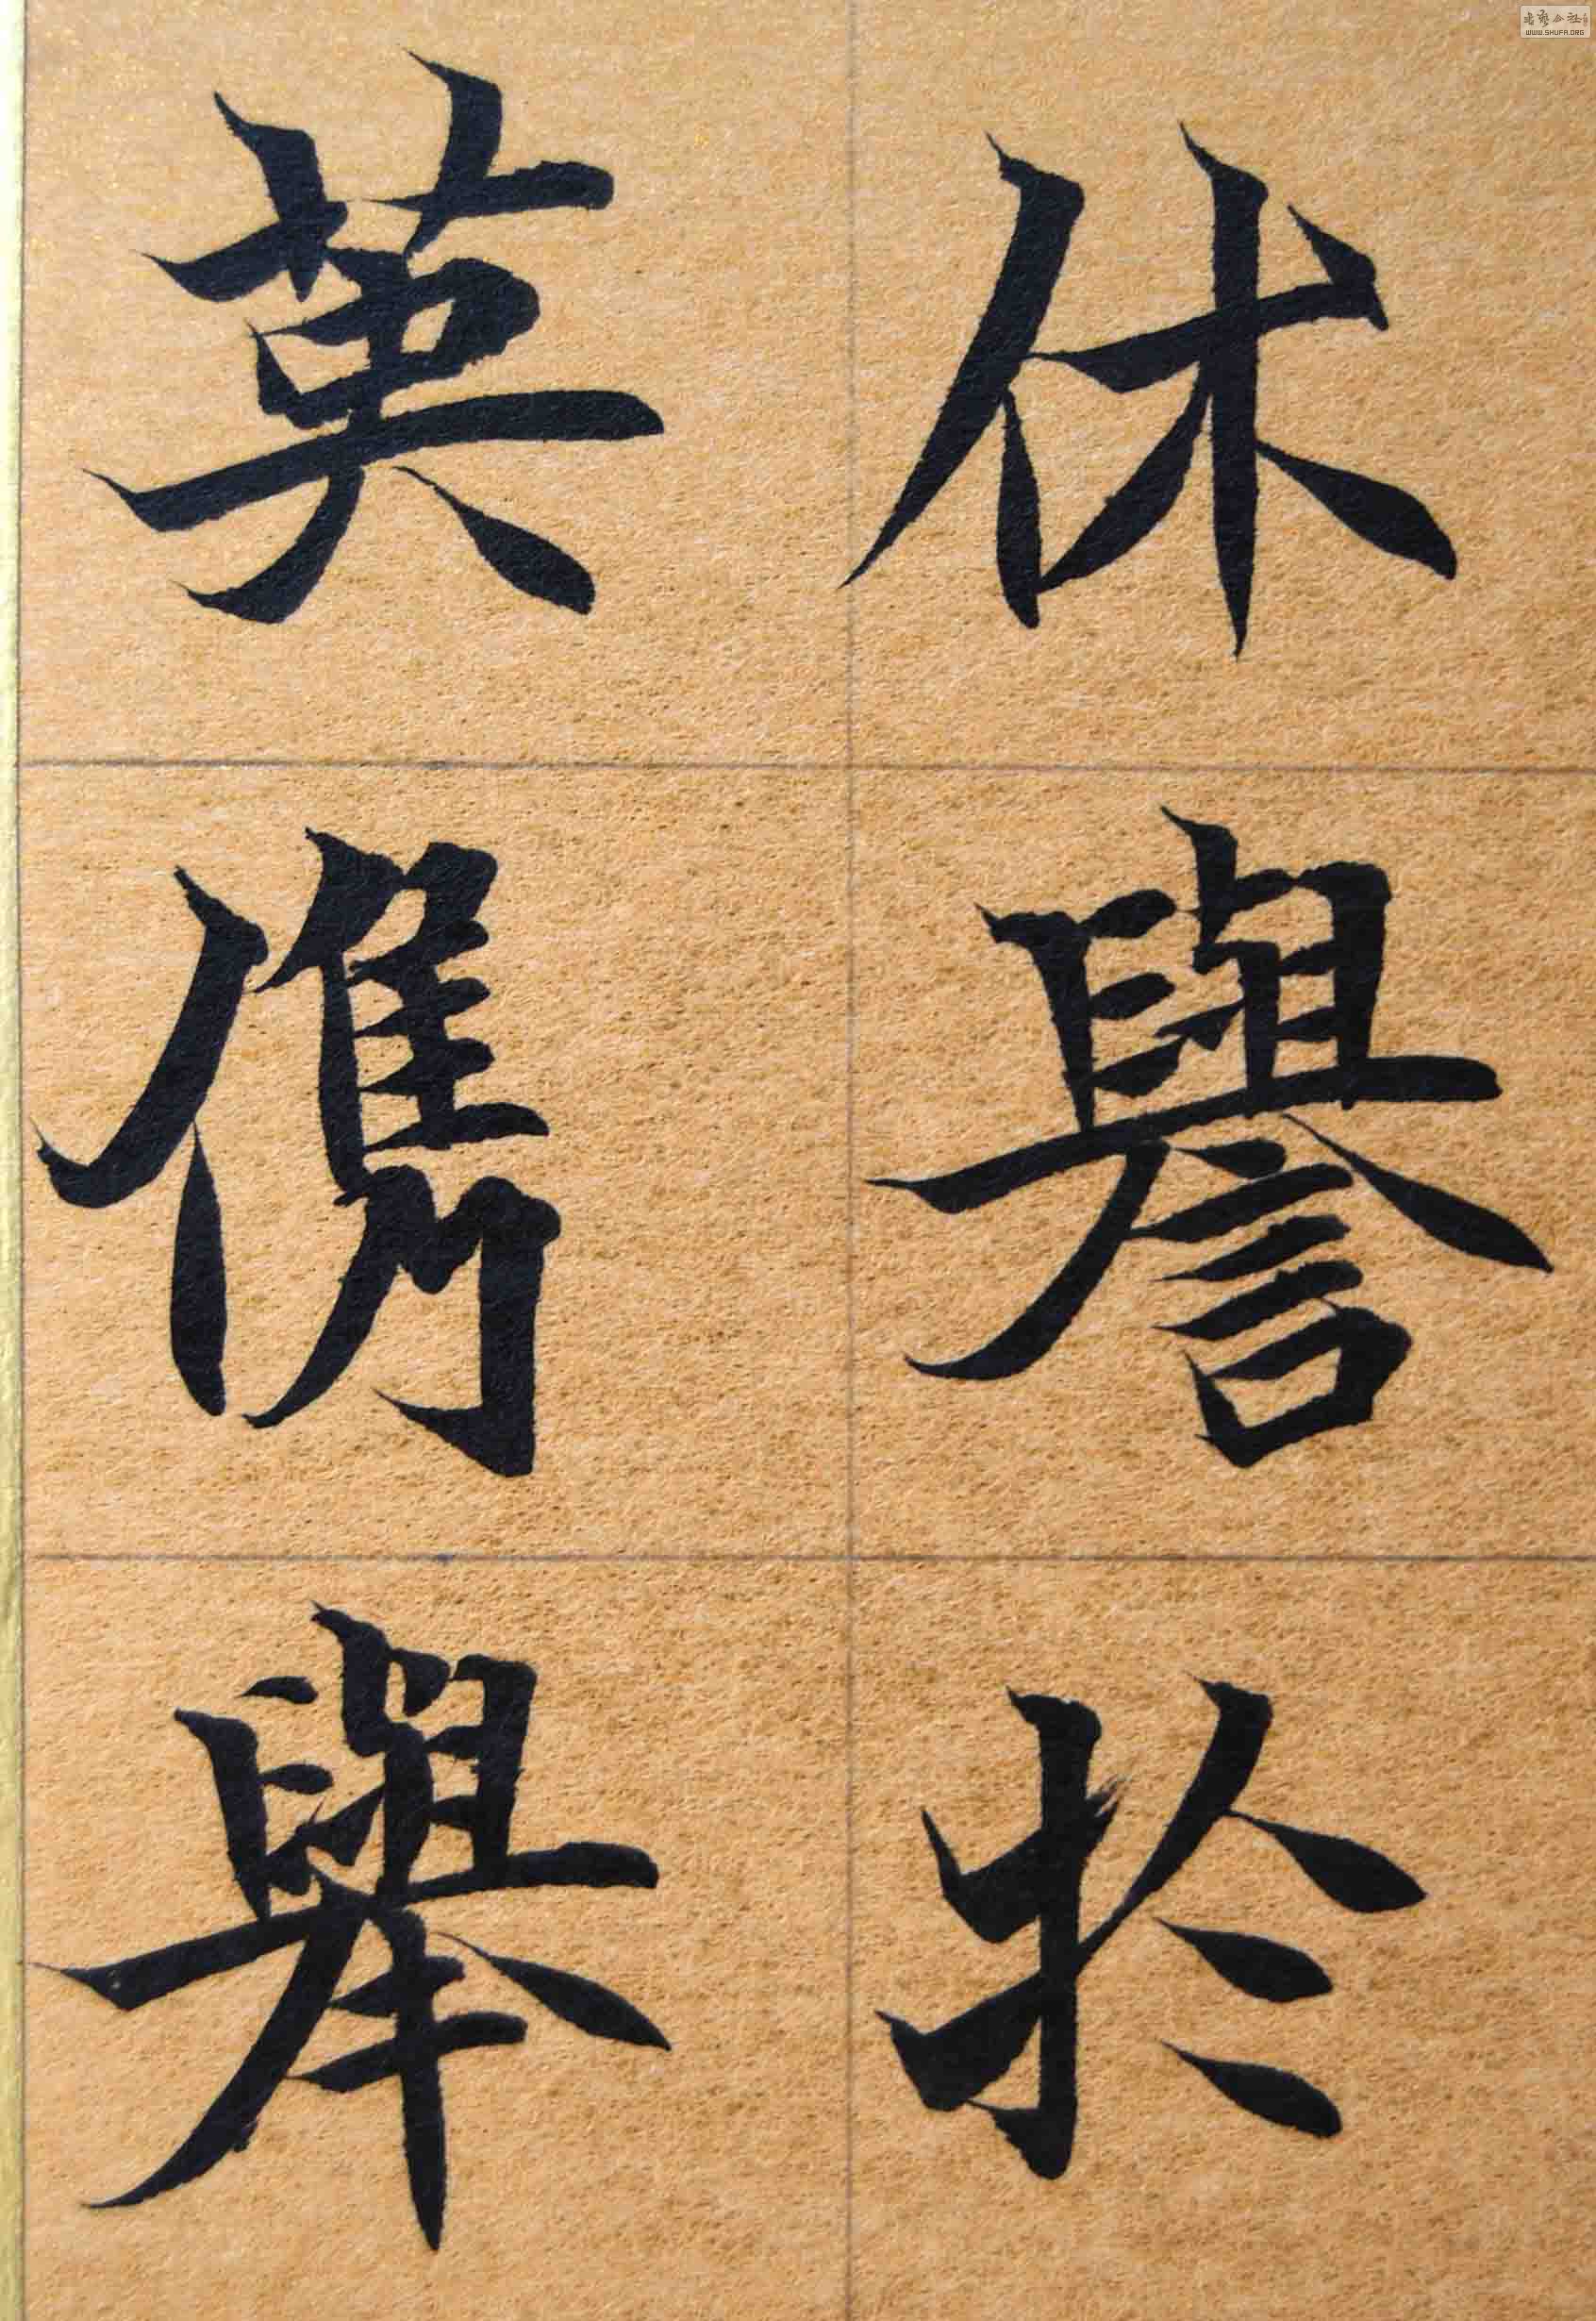 休譽於
英儁舉
书艺公社
WWW.SHUFA.ORG